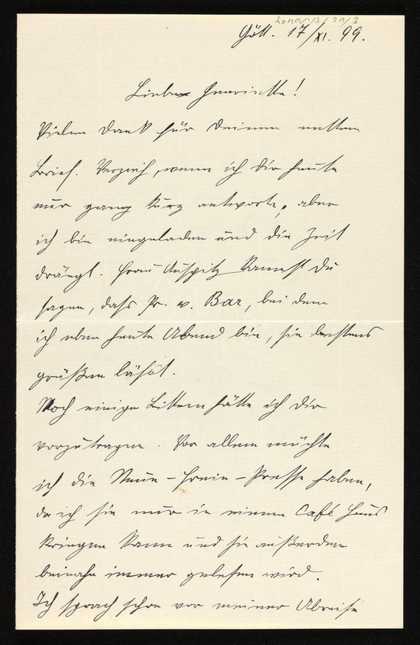 Gött. 17/XI. 99.
Liebe Henriette!
Vielen Dank für Deinen netten
Brief. Verzeih, wenn ich Dir heute
nur ganz kurz antworte, aber
ich bin eingeladen und die Zeit
drängt. Frau Auspitz kannst Du
sagen, dass Pr. v. Bar, bei dem
ich eben heute Abend bin, sie bestens
grüßen läßt.
Noch einige Bitten hätte ich Dir
vorzutragen. Vor allem möchte
ich die Neue-Freie-Presse haben,
da ich sie nur in einem Café Haus
kriegen kann und sie außerdem
beinahe immer gelesen wird.
Ich sprach schon vor meiner Abreise